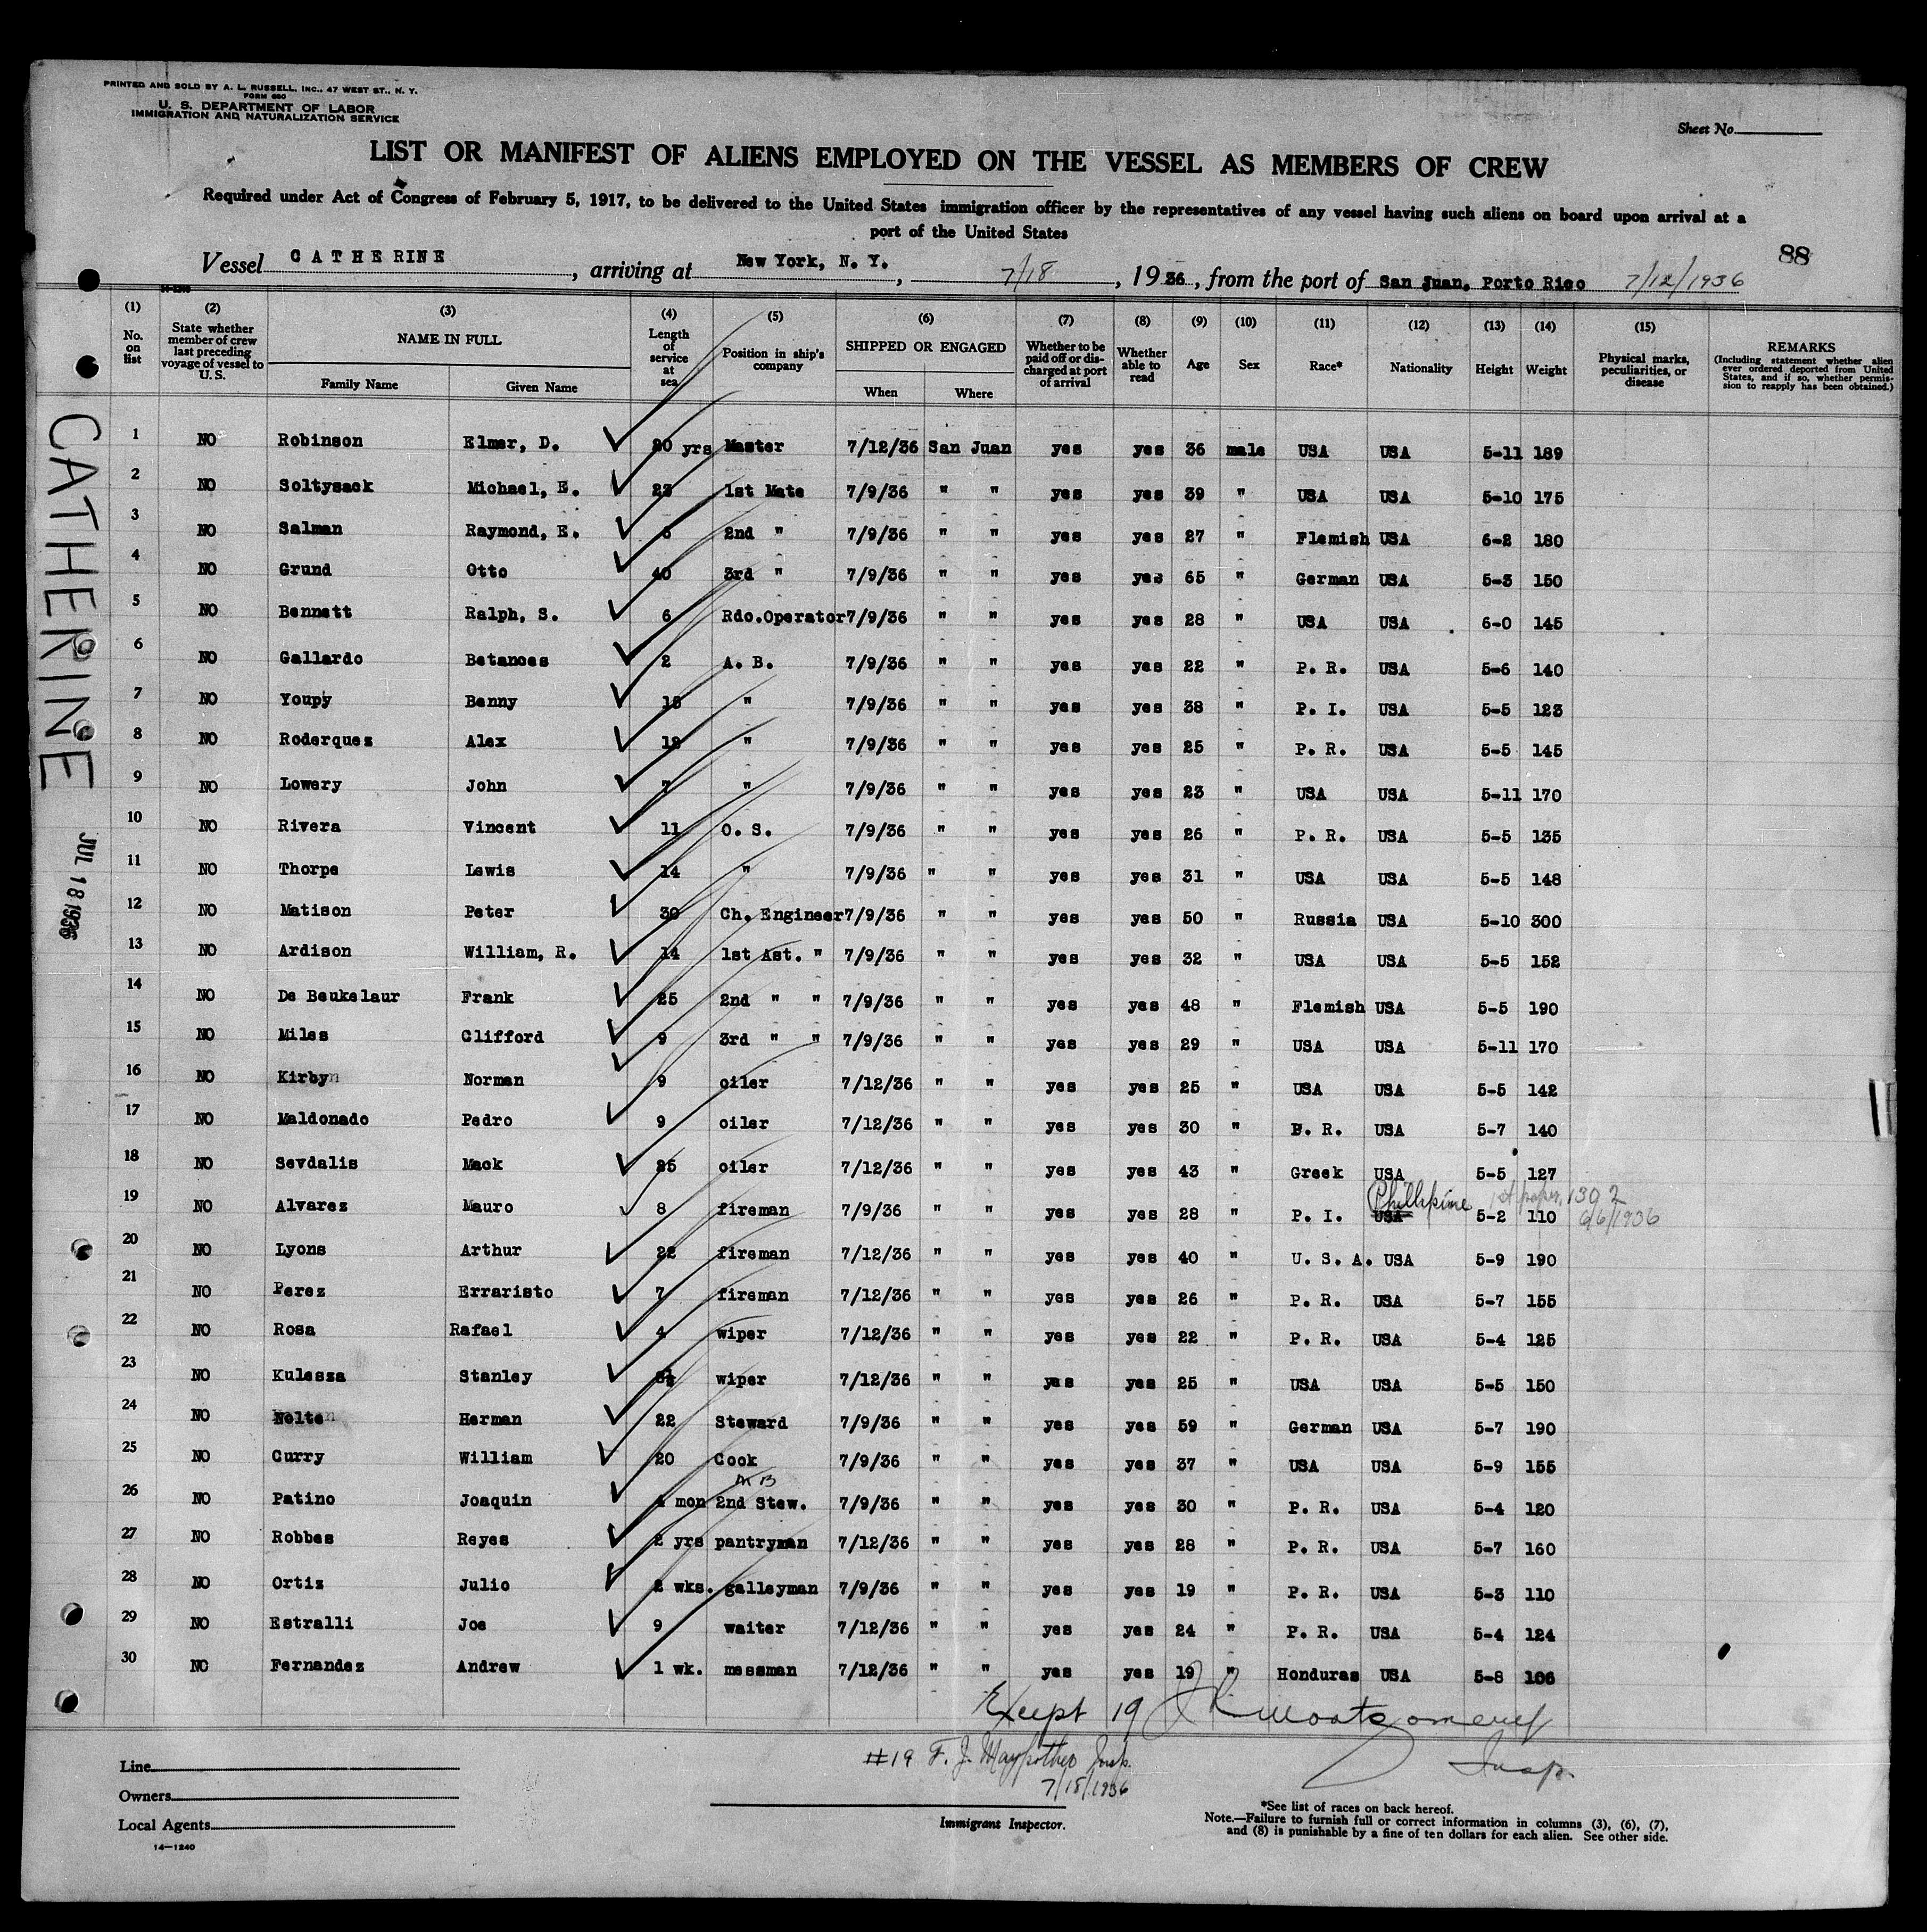 PRINTED AND SOLD BY A. L. RUSSELL, INC., 47 WEST ST., N. Y.
FORM 680
U. S. DEPARTMENT OF LABOR
IMMIGRATION AND NATURALIZATION SERVICE
Sheet No.
LIST OR MANIFEST OF ALIENS EMPLOYED ON THE VESSEL AS MEMBERS OF CREW
Required under Act of Congress of February 5, 1917, to be delivered to the United States immigration officer by the representatives of any vessel having such aliens on board upon arrival at a
port of the United States
88
Vessel CATHERINE, arriving at New York, N. Y., 7/18, 1936, from the port of San Juan, Porto Rico 7/12/1936
(1) (2) (3) (4) (5) (6) (7) (8) (9) (10) (11) (12) (13) (14) (15)
No. on list
State whether member of crew last preceding voyage of vessel to U. S.
NAME IN FULL
Family Name Given Name
Length of service at sea
Position in ship's company
SHIPPED OR ENGAGED
When Where
Whether to be paid off or discharged at port of arrival
Whether able to read
Age Sex Race* Nationality Height Weight
Physical marks, peculiarities, or disease
REMARKS
(Including statement whether alien ever ordered deported from United States, and if so, whether permission to reapply has been obtained.)
1 NO Robinson Elmer, D. 20 yrs Master 7/12/36 San Juan yes yes 36 male USA USA 5-11 189
2 NO Soltysack Michael, E. 23 1st Mate 7/9/36 " " yes yes 39 " USA USA 5-10 175
3 NO Salman Raymond, E. 2nd " 7/9/36 " " yes yes 27 " Flemish USA 6-2 180
4 NO Grund Otto 40 3rd " 7/9/36 " " yes yes 65 " German USA 5-3 150
5 NO Bennett Ralph, S. 6 Rdo.Operator 7/9/36 " " yes yes 28 " USA USA 6-0 145
6 NO Gallardo Betances 2 A. B. 7/9/36 " " yes yes 22 " P. R. USA 5-6 140
7 NO Youpy Benny 15 " 7/9/36 " " yes yes 38 " P. I. USA 5-5 123
8 NO Roderquez Alex 12 " 7/9/36 " " yes yes 25 " P. R. USA 5-5 145
9 NO Lowery John 7 " 7/9/36 " " yes yes 23 " USA USA 5-11 170
10 NO Rivera Vincent 11 O. S. 7/9/36 " " yes yes 26 " P. R. USA 5-5 135
11 NO Thorpe Lewis 14 " 7/9/36 " " yes yes 31 " USA USA 5-5 148
12 NO Matison Peter 30 Ch. Engineer 7/9/36 " " yes yes 50 " Russia USA 5-10 300
13 NO Ardison William, R. 14 1st Ast. " 7/9/36 " " yes yes 32 " USA USA 5-5 152
14 NO De Beukelaur Frank 25 2nd " " 7/9/36 " " yes yes 48 " Flemish USA 5-5 190
15 NO Miles Clifford 9 3rd " " 7/9/36 " " yes yes 29 " USA USA 5-11 170
16 NO Kirby Norman 9 oiler 7/12/36 " " yes yes 25 " USA USA 5-5 142
17 NO Maldonado Pedro 9 oiler 7/12/36 " " yes yes 30 " P. R. USA 5-7 140
18 NO Sevdalis Mack 25 oiler 7/12/36 " " yes yes 43 " Greek USA 5-5 127
19 NO Alvarez Mauro 8 fireman 7/9/36 " " yes yes 28 " P. I. USA Phillipine 5-2 110 1st paper, 1302 6/6/1936
20 NO Lyons Arthur 22 fireman 7/12/36 " " yes yes 40 " U. S. A. USA 5-9 190
21 NO Perez Erraristo 7 fireman 7/12/36 " " yes yes 26 " P. R. USA 5-7 155
22 NO Rosa Rafael 4 wiper 7/12/36 " " yes yes 22 " P. R. USA 5-4 125
23 NO Kulessa Stanley wiper 7/12/36 " " yes yes 25 " USA USA 5-5 150
24 NO Nolte Herman 22 Steward 7/9/36 " " yes yes 59 " German USA 5-7 190
25 NO Curry William 20 Cook 7/9/36 " " yes yes 37 " USA USA 5-9 155
26 NO Patino Joaquin 4 mon 2nd Stew. 7/9/36 " " yes yes 30 " P. R. USA 5-4 120
27 NO Robbes Reyes 2 yrs pantryman 7/12/36 " " yes yes 28 " P. R. USA 5-7 160
28 NO Ortiz Julio 2 wks. galleyman 7/9/36 " " yes yes 19 " P. R. USA 5-3 110
29 NO Estralli Joe 9 waiter 7/12/36 " " yes yes 24 " P. R. USA 5-4 124
30 NO Fernandez Andrew 1 wk. messman 7/12/36 " " yes yes 19 " Honduras USA 5-8 106
CATHERINE
JUL 18 1936
Except 19 Montgomery
Insp.
#19 F. J. Maypother Insp.
7/18/1936
Line
Owners
Local Agents
14—1240
Immigrant Inspector.
*See list of races on back hereof.
Note.—Failure to furnish full or correct information in columns (3), (6), (7),
and (8) is punishable by a fine of ten dollars for each alien. See other side.